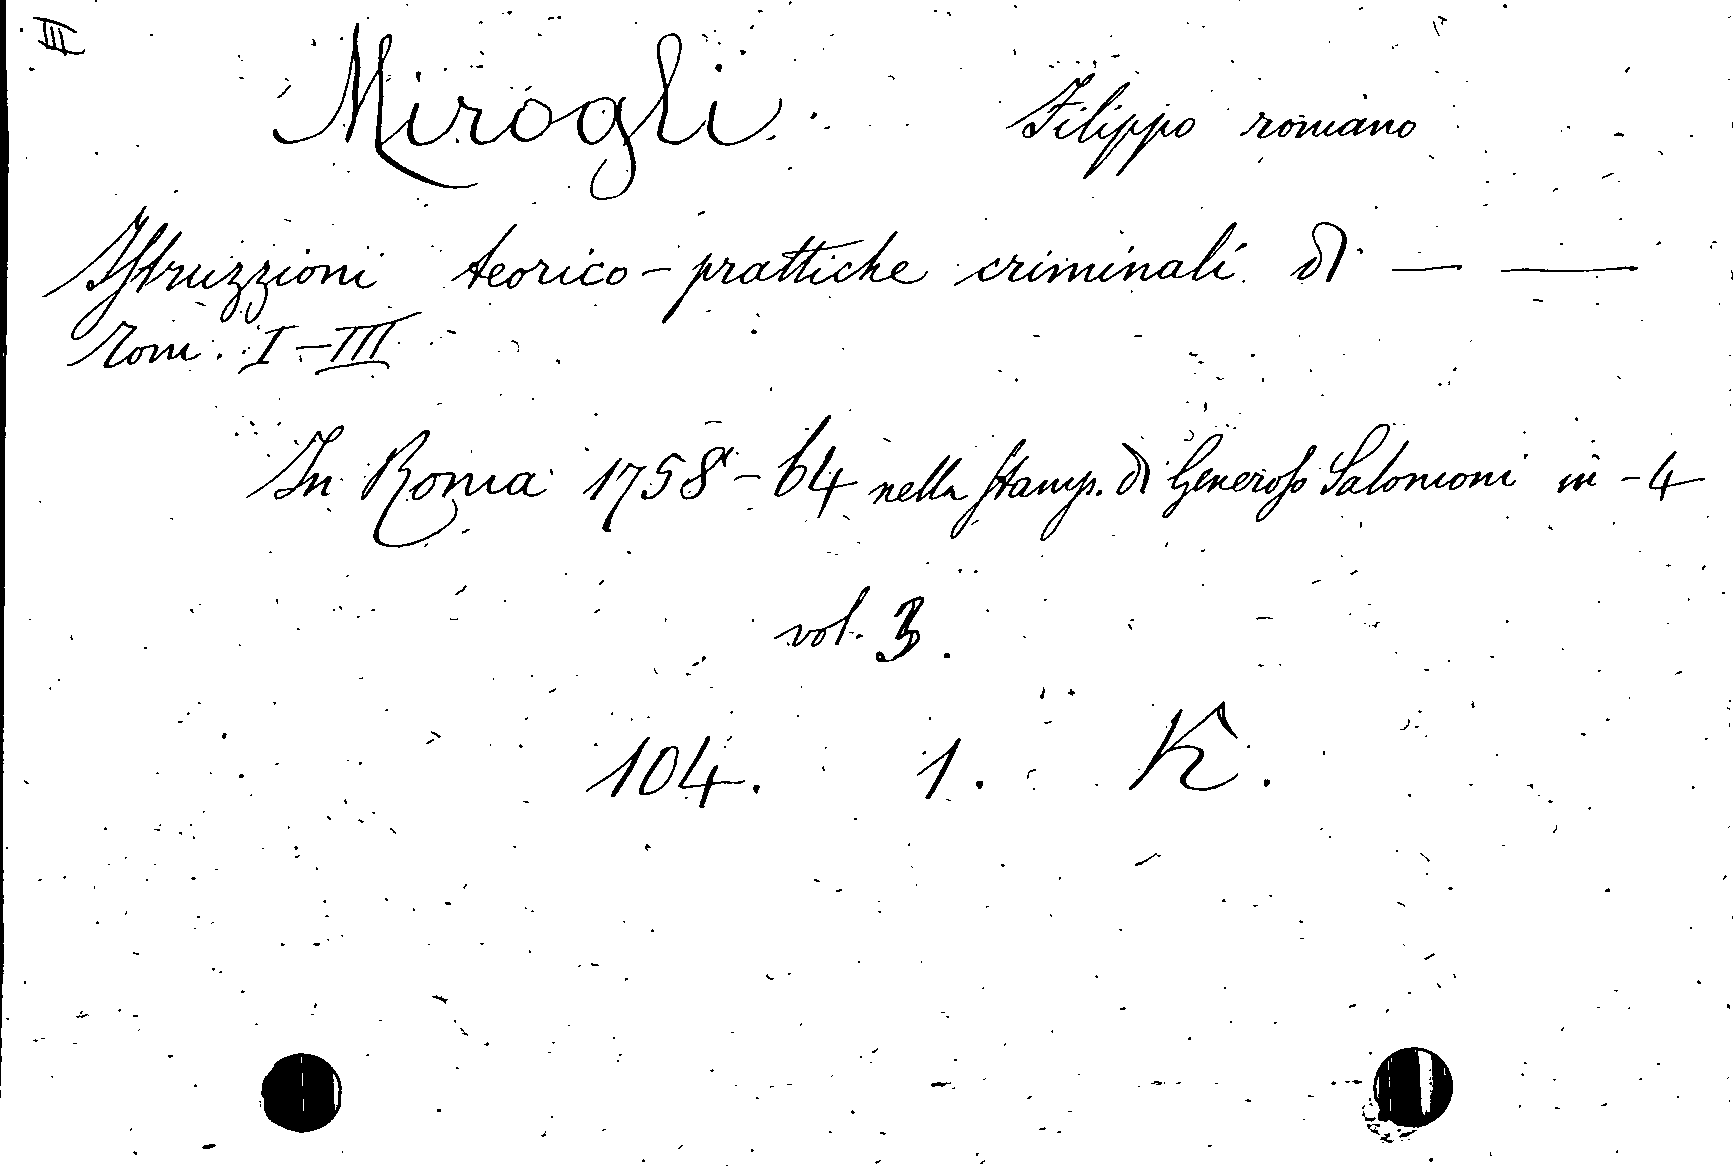 III
Mirogli Filippo romano
Istruzzioni teorico-prattiche criminali di — —
Tom. I-III
In Roma 1758-64 nella stamp. di Generoso Salomoni in-4
vol. 3.
104. 1. K.